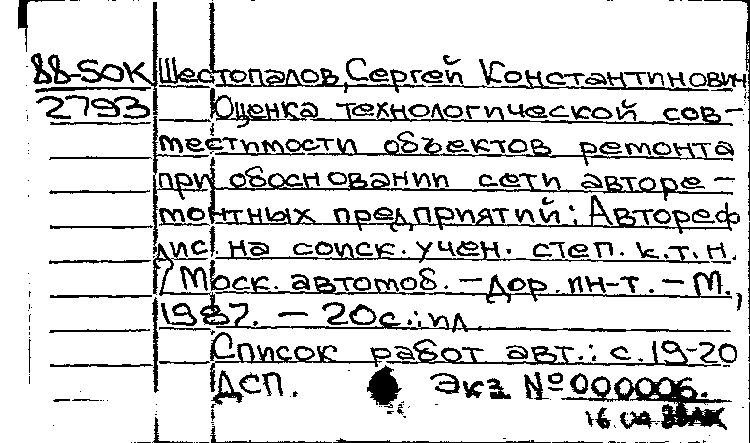 88-50К Шестопалов, Сергей Константинович
2793 Оценка технологической сов-
местимости объектов ремонта
при обосновании сети авторе-
монтных предприятий: Автореф
дис. на соиск. учен. степ. к.т.н.
/ Моск. автомоб.-дор. ин-т. - М.,
1987. - 20с.: ил.
Список работ авт.: с. 19-20
ДСП. Экз №000006.
16.04